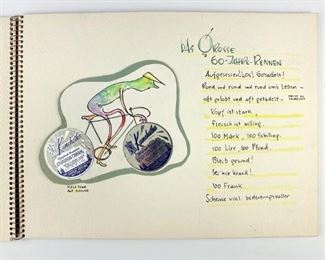 DAS GROSSE
60-JAHRE-RENNEN
Aufgesessen! Los! Geradelt!
Rund und rund und rund ums Leben –
oft gelobt und oft getadelt.
Kopf ist stark,
Fleisch ist willig.
100 Mark, 100 Schilling.
100 Lire, 100 Pfund.
Bleib gesund!
Sei nie krank!
100 Frank.
Scheine viel bedeutungsvoller